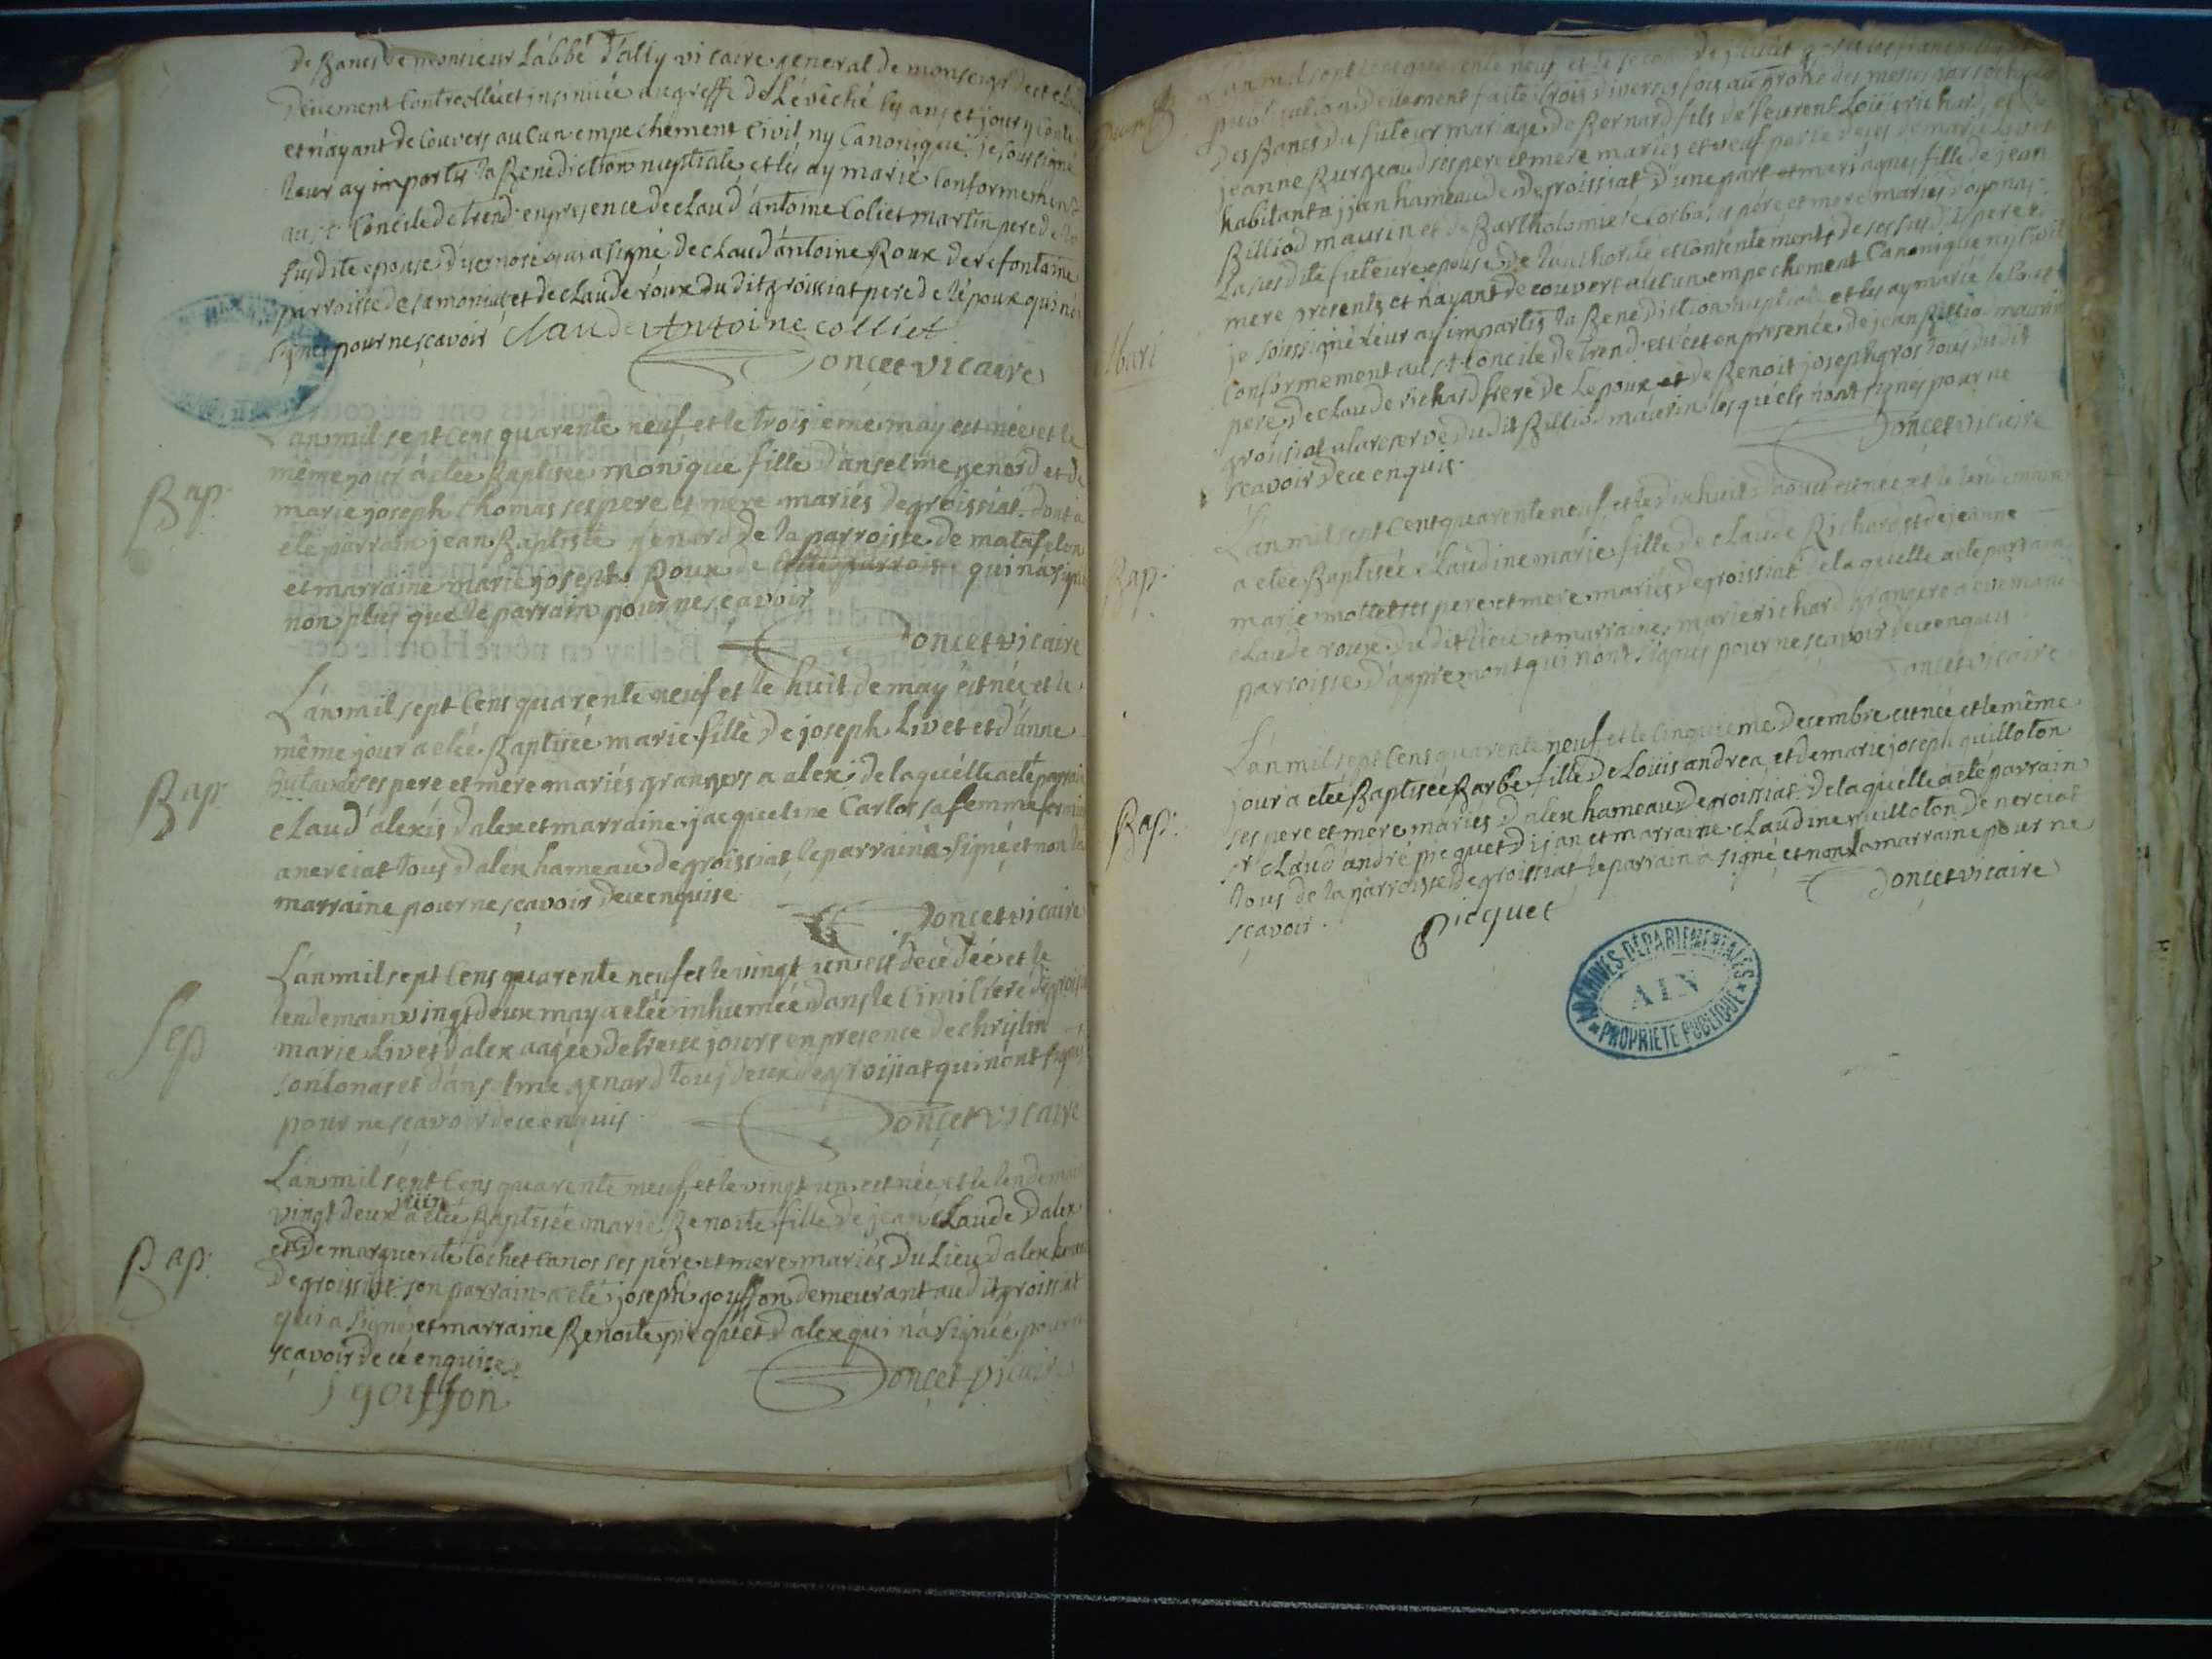 de Bancs de monsieur L'abbé d'ally vicaire general de monseigr
Deuement Controollée et insinuée au greffe de L'evêché les ans et jour y
et n'ayant decouvers aucun empechement Civil ny Canonique. je soussigné
leur ay impartis la Benediction nuptiale et les ay marié Conformement
au st Concile de trend. en presence de claud' antoine Coliet martin pere de
susdite epouse d'isernore qui a signé de claud' antoine Roux de refontaine
parroisse de samoniat et de claude roux du dit groissiat pere de l'époux qui n'a
signés pour ne sçavoir Claude Antoine colliet
Doncet vicaire
L'an mil sept cens quarente neuf et le troisieme may est née et le
même jour à etée Baptisée monique fille d'anselme genard et de
Bap.
marie joseph thomas ses pere et mere mariés de groissiat. dont a
eté parrain jean Baptiste genard de la parroisse de matafelon
et marraine marie joseph Roux de qui n'a signé
non plus que le parrain pour ne sçavoir
Doncet vicaire
L'an mil sept cens quarente neuf et le huit de may est née et le
même jour a etée Baptisée marie fille de joseph Livet et d'anne
ses pere et mere mariés grangers a alex. de laquelle a eté parrain
Bap.
claud' alexis d'alex et marraine jacqueline Carlot sa femme
a nerciat tous d'alex hameau de groissiat, le parrain a signé et non la
marraine pour ne sçavoir de ce enquise
Doncet vicaire
L'an mil sept cens quarente neuf et le vingt un est decedée et le
lendemain vingt deux may a etée inhumée dans le Cimitiére de
Sep
marie Livet d'alex aagée de treize jours en presence de
sonlonas et d'anselme genard tous deux de groissiat qui n'ont signés
pour ne sçavoir de ce enquis
Doncet vicaire
L'an mil sept cens quarente neuf, et le vingt un est née et le lendemain
vingt deux juin a etée Baptisée marie Benoite fille de jean Claude d'alex
Bap.
et de marguerite Cochet canos ses pére et mere mariés du Lieu d'alex
de groissiat. son parrain a eté joseph gouffon demeurant au dit groissiat
qui a signé et marraine Benoite picquet d'alex qui n'a signée pour
sçavoir de ce enquise
Doncet vicaire
j gouffon
L'an mil sept cent quarente neuf et le second de
publication deuement faite trois diverses fois au prône des messes
des Bancs du futeur mariage de Bernard fils de feurent Loüis richard et
jeanne Burgeaud ses pere et mere mariés et veuf par le decés de marie Livet
habitant a jjan hameau de groissiat d'une part et meri agnes fille de jean
Billiod maurin et de Bartholomiere Corbas ses pére et mere mariés d'oyonas.
Mari
La susdite futeure epouse de l'authorité et Consentements de ses susdits pere et
mere presents et n'ayant decouvert aucun empechement Canonique ny Civil
je soussigné leur ay impartis la Benediction nuptiale et les ay marié le tout
Conformement au st Concile de trend. et c'est en presence de jean Billiod maurin
pere, de claude richard frere de l'époux et de Benoit joseph gros tous du dit
groissiat a la reserve du dit Billiod maurin lesquels n'ont signés pour ne
sçavoir de ce enquis.
Doncet vicaire
L'an mil sept cent quarente neuf, et le dix huit d'aout est née et le lendemain
a etée Baptisée Claudine marie fille de claude Richard et de jeanne
Bap.
marie mottet ses pere et mere mariés de groissiat. de laquelle a eté parrain
claude roux du dit lieu et marraine marie richard
parroisse d'appremont qui n'ont signés pour ne sçavoir de ce enquis
Doncet vicaire
L'an mil sept cens quarente neuf et le cinquieme decembre est née et le même
jour a etée Baptisée Barbe fille de Loüis andrea et de marie joseph guilloton
Bap.
ses pere et mere mariés d'alex hameau de groissiat. de laquelle a eté parrain
sr claud' andré picquet d'ijan et marraine claudine guilloton de nerciat
tous de la parroisse de groissiat, le parrain a signé et non la marraine pour ne
sçavoir.
Doncet vicaire
Picquet
ARCHIVES DÉPARTEMENTALES
AIN
PROPRIÉTÉ PUBLIQUE